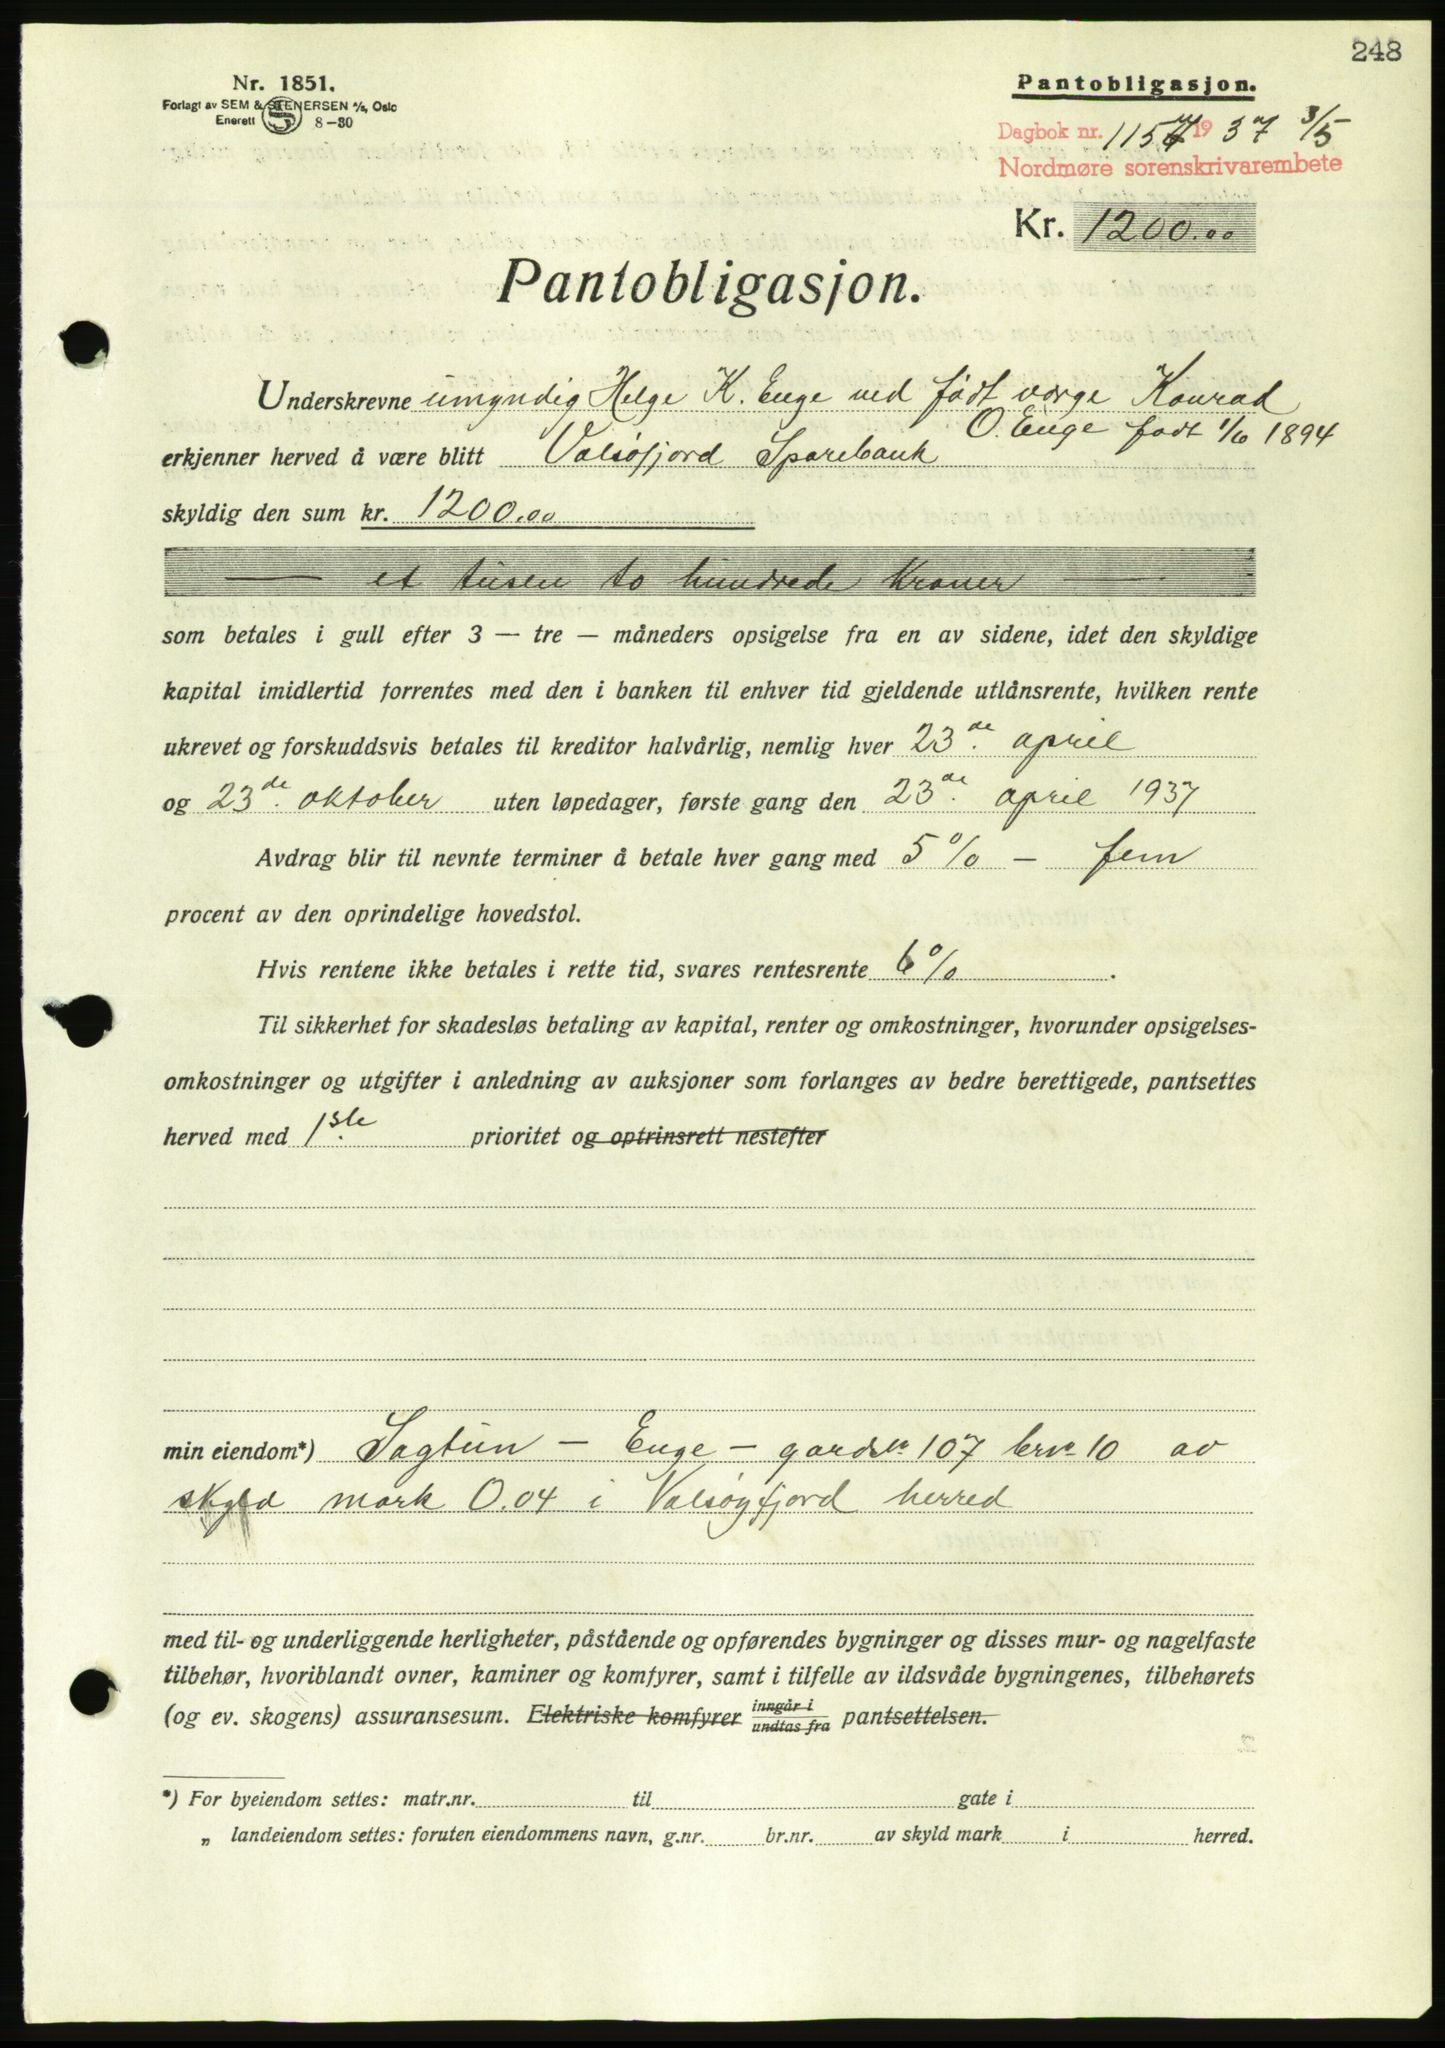 248
Nr. 1851.
Forlagt av SEM & STENERSEN A/S, Oslo
Enerett 8-30
Pantobligasjon.
Dagbok nr. 1157 1937 3/5
Nordmøre sorenskrivarembete
Kr. 1200.00
Pantobligasjon.
Underskrevne umyndig Helge K. Enge ved født verge Konrad
O. Enge født 1/10 1894
erkjenner herved å være blitt Valsøfjord Sparebank
skyldig den sum kr. 1200.00
— et tusen to hundrede Kroner —
som betales i gull efter 3 — tre — måneders opsigelse fra en av sidene, idet den skyldige
kapital imidlertid forrentes med den i banken til enhver tid gjeldende utlånsrente, hvilken rente
ukrevet og forskuddsvis betales til kreditor halvårlig, nemlig hver 23de. april
og 23de. oktober uten løpedager, første gang den 23de. april 1937
Avdrag blir til nevnte terminer å betale hver gang med 5 % — fem
procent av den oprindelige hovedstol.
Hvis rentene ikke betales i rette tid, svares rentesrente 6 % .
Til sikkerhet for skadesløs betaling av kapital, renter og omkostninger, hvorunder opsigelses-
omkostninger og utgifter i anledning av auksjoner som forlanges av bedre berettigede, pantsettes
herved med 1ste. prioritet og optrinsrett nestefter
min eiendom*) Sagtun — Enge — gardsnr 107 brnr 10 av
skyld mark 0.04 i Valsøyfjord herred
med til- og underliggende herligheter, påstående og opførendes bygninger og disses mur- og nagelfaste
tilbehør, hvoriblandt ovner, kaminer og komfyrer, samt i tilfelle av ildsvåde bygningenes, tilbehørets
(og ev. skogens) assuransesum. Elektriske komfyrer inngår i / undtas fra pantsettelsen.
*) For byeiendom settes: matr.nr. til gate i
„ landeiendom settes: foruten eiendommens navn, g.nr. br.nr. av skyld mark i herred.